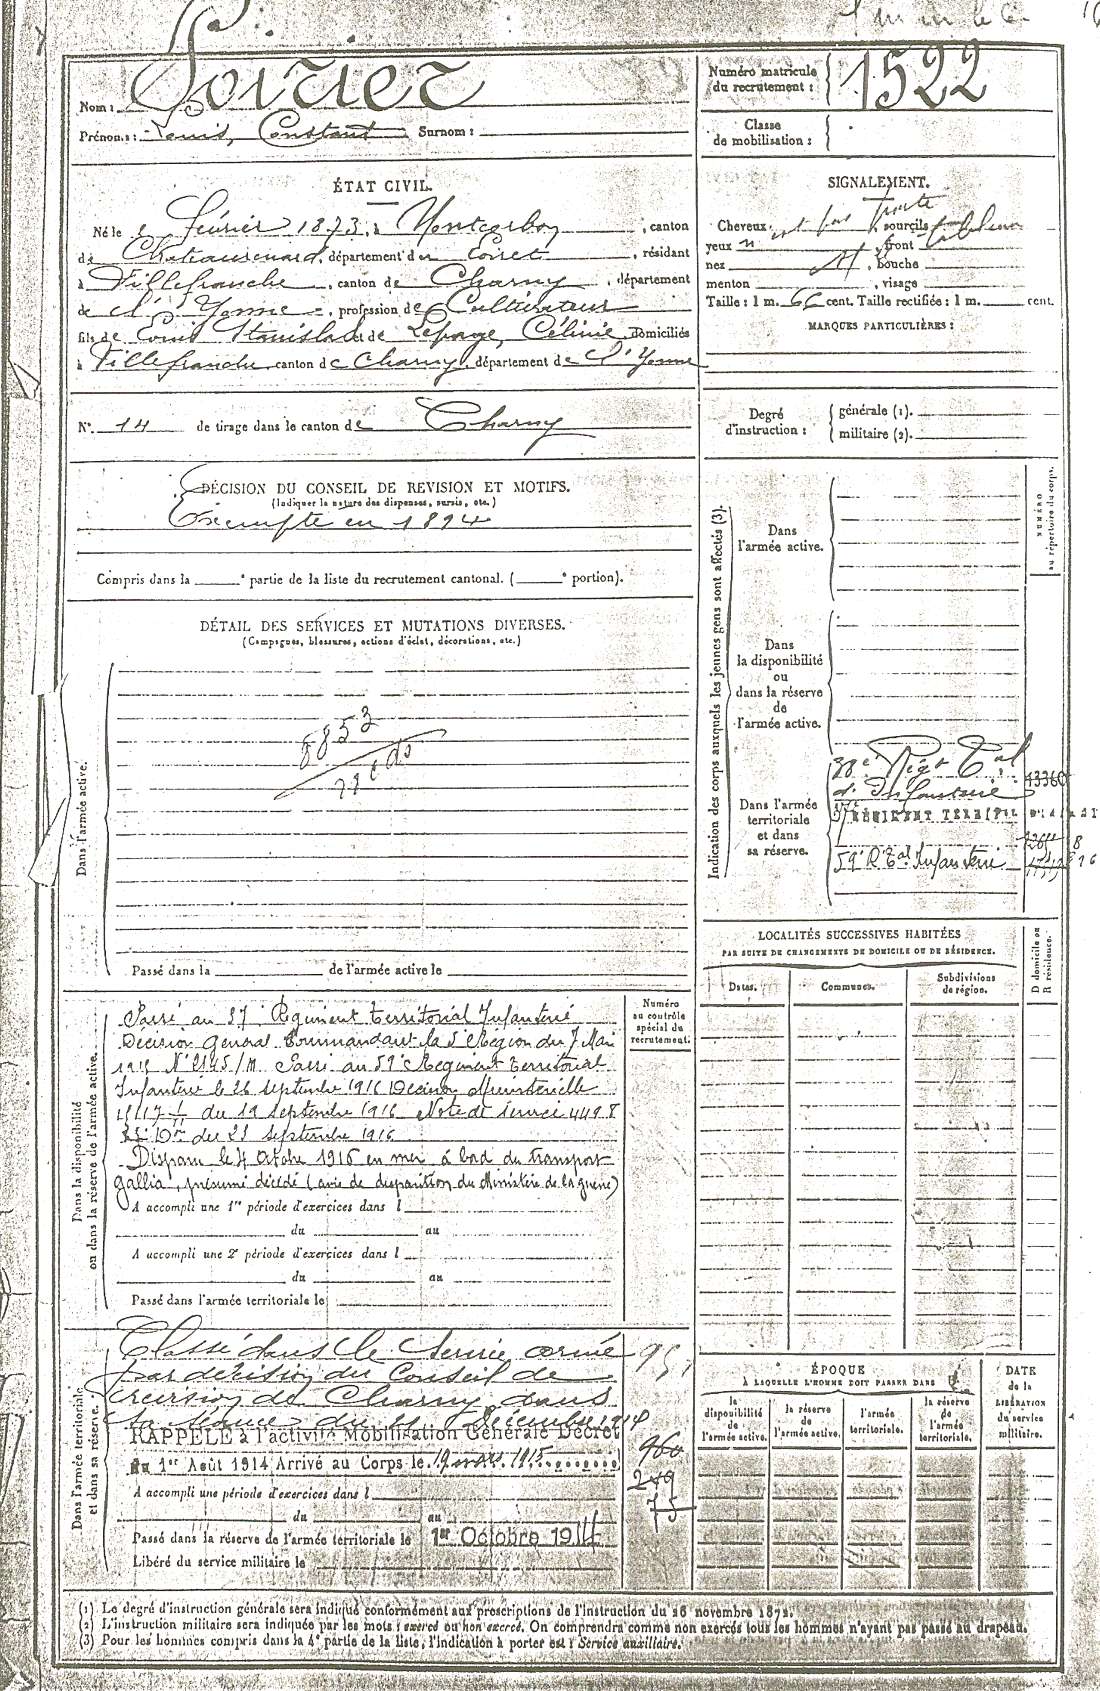 Nom : Poirier
Prénoms : Louis, Constant Surnom :
Numéro matricule du recrutement : 1522
Classe de mobilisation :
ÉTAT CIVIL.
Né le 2 février 1873, à Montcorbon, canton
de Chateaurenard, département du Loiret, résidant
à Villefranche, canton de Charny, département
de l'Yonne, profession de Cultivateur
fils de Louis Stanislas et de Lepage, Célinie, domiciliés
à Villefranche, canton de Charny, département de l'Yonne
SIGNALEMENT.
Cheveux , sourcils
yeux , front
nez , bouche
menton , visage
Taille : 1 m. 66 cent. Taille rectifiée : 1 m. cent.
MARQUES PARTICULIÈRES :
N°. 14 de tirage dans le canton de Charny
Degré d'instruction : générale (1).
militaire (2).
DÉCISION DU CONSEIL DE REVISION ET MOTIFS.
(Indiquer la nature des dispenses, sursis, etc.)
Exempté en 1894
Compris dans la ° partie de la liste du recrutement cantonal. ( ° portion).
DÉTAIL DES SERVICES ET MUTATIONS DIVERSES.
(Campagnes, blessures, actions d'éclat, décorations, etc.)
Dans l'armée active.
8853
Passé dans la de l'armée active le
Indication des corps auxquels les jeunes gens sont affectés (3).
NUMÉRO au répertoire du corps.
Dans l'armée active.
Dans la disponibilité ou dans la réserve de l'armée active.
Dans l'armée territoriale et dans sa réserve.
38e Régt Tal
d'Infanterie
13360
RÉGIMENT TERRITAL
59e R. Tal Infanterie
LOCALITÉS SUCCESSIVES HABITÉES
PAR SUITE DE CHANGEMENTS DE DOMICILE OU DE RÉSIDENCE.
Dates. Communes. Subdivisions de région. D domicile ou R résidence.
Dans la disponibilité ou dans la réserve de l'armée active.
Numéro au contrôle spécial du recrutement.
Passé au 37e Régiment Territorial Infanterie
Décision Général Commandant la 5e Région du 7 Mai
1915 N° 2145/M. Passé au 59e Régiment Territorial
Infanterie le 26 septembre 1916 Décision Ministérielle
du 19 Septembre 1916 Note de service 4498
du 23 Septembre 1916
Disparu le 4 Octobre 1916 en mer à bord du transport
Gallia, présumé décédé (avis de disparition du Ministère de la guerre)
A accompli une 1re période d'exercices dans l
du au
A accompli une 2e période d'exercices dans l
du au
Passé dans l'armée territoriale le
Dans l'armée territoriale et dans sa réserve.
Classé dans le Service armé
par décision du Conseil de
révision de Charny dans
sa séance du Décembre 1914
RAPPELÉ à l'activité Mobilisation Générale Décret
du 1er Août 1914 Arrivé au Corps le 19 mars 1915
960
249
75
A accompli une période d'exercices dans l
du au
Passé dans la réserve de l'armée territoriale le 1er Octobre 1914
Libéré du service militaire le
ÉPOQUE
À LAQUELLE L'HOMME DOIT PASSER DANS
la disponibilité de l'armée active. la réserve de l'armée active. l'armée territoriale. la réserve de l'armée territoriale.
DATE de la LIBÉRATION du service militaire.
(1) Le degré d'instruction générale sera indiqué conformément aux prescriptions de l'instruction du 26 novembre 1872.
(2) L'instruction militaire sera indiquée par les mots : exercé ou non exercé. On comprendra comme non exercés tous les hommes n'ayant pas passé au drapeau.
(3) Pour les hommes compris dans la 4e partie de la liste, l'indication à porter est : Service auxiliaire.